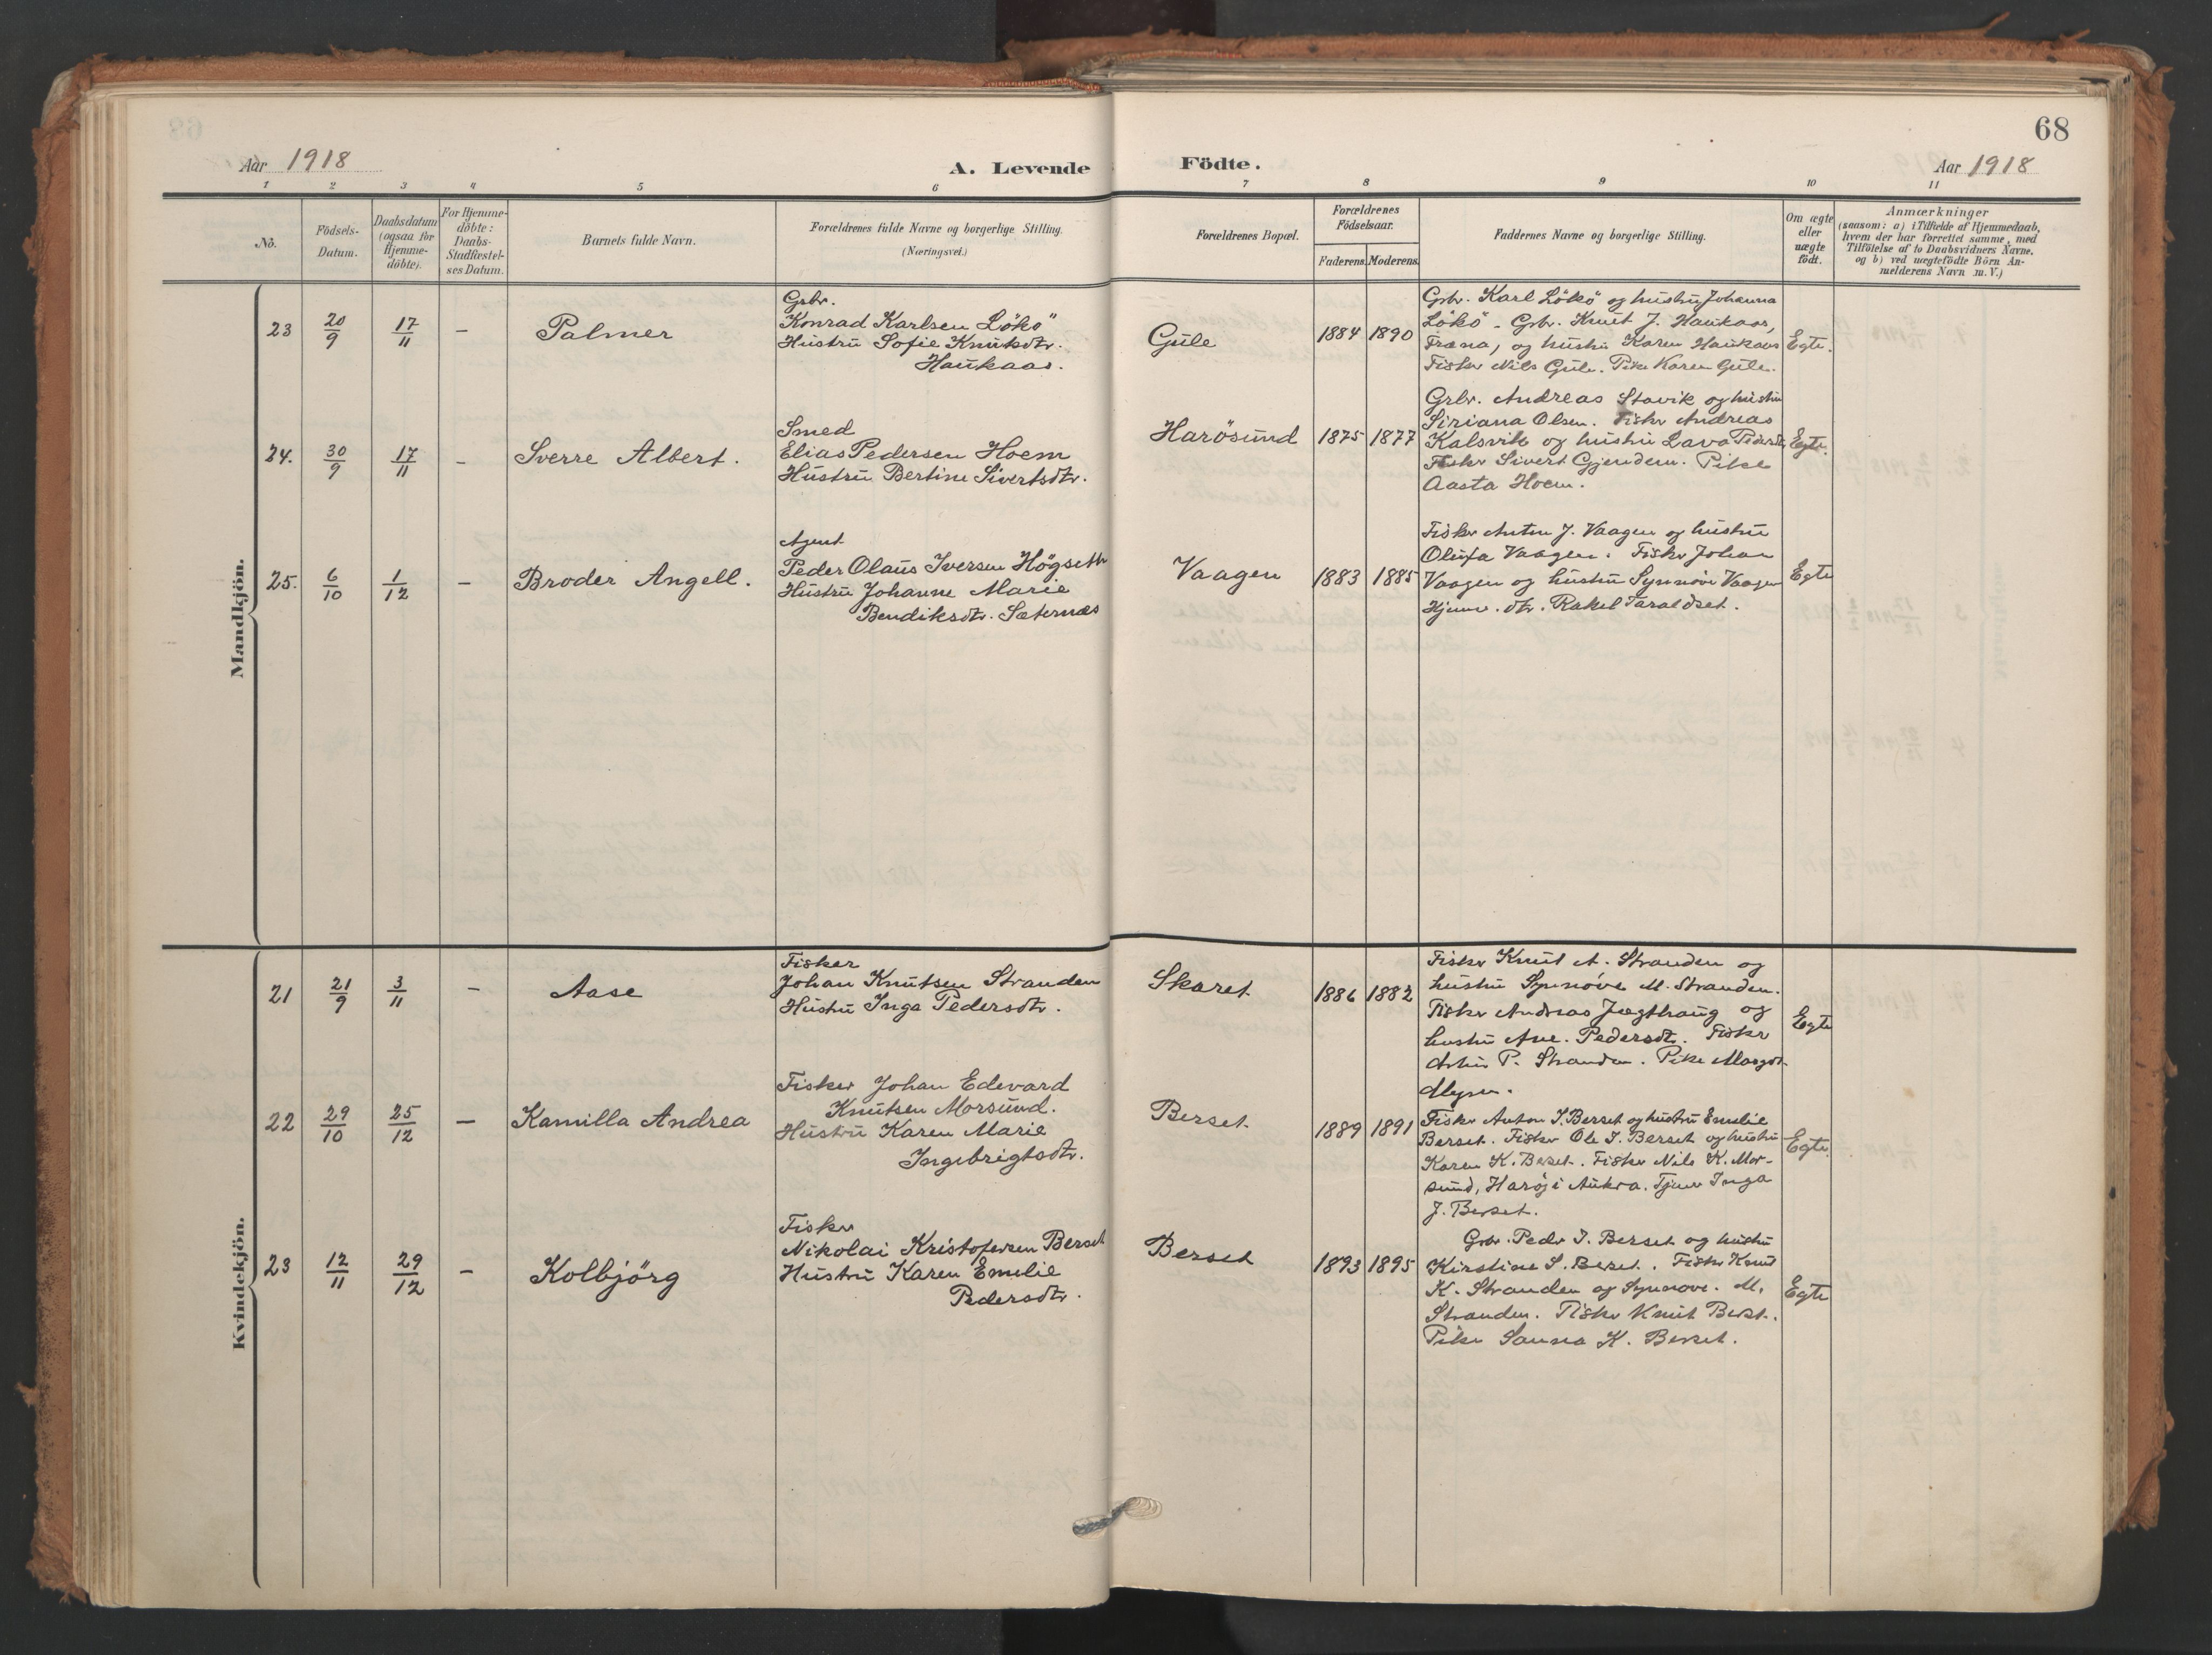 68
Aar 1918
A. Levende Födte.
Aar 1918
1 2 3 4 5 6 7 8 9 10 11
No.
Födsels-
Datum.
Daabsdatum
(ogsaa for
Hjemme-
döbte).
For Hjemme-
döbte:
Daabs-
Stadfæstel-
ses Datum.
Barnets fulde Navn.
Forældrenes fulde Navne og borgerlige Stilling.
(Næringsvei.)
Forældrenes Bopæl.
Forældrenes
Födselsaar.
Faderens. Moderens.
Faddernes Navne og borgerlige Stilling.
Om ægte
eller
uægte
födt.
Anmærkninger
(saasom: a) i Tilfælde af Hjemmedaab,
hvem der har forrettet samme, med
Tilföielse af to Daabsvidners Navne.
og b) ved uægtefödte Börn An-
melderens Navn m. V.)
Mandkjön.
23 20/9 17/11 – Palmer
Grbr.
Konrad Karlsen Lökö
Hustru Sofie Knutsdtr.
Haukaas.
Gule 1884 1890
Grbr. Karl Lökö og hustru Johanna
Lökö. Grbr. Knut J. Haukaas,
Fræna, og hustru Karen Haukaas
Fisker Nils Gule. Pike Karen Gule.
Egte.
24. 30/9 17/11 – Sverre Albert.
Smed
Elias Pedersen Hoem
Hustru Bertine Sivertsdtr.
Harösund 1875 1877
Grbr. Andreas Stavik og hustru
Siriana Olsen. Fisker Andreas
Kalsvik og hustru Lava Pedersdtr.
Fisker Sivert Gjendem. Pike
Aasta Hoem.
Egte.
25. 6/10 1/12 – Broder Angell.
Agent
Peder Olaus Iversen Högseth
Hustru Johanne Marie
Bendiksdtr. Sæternes
Vaagen 1883 1885
Fisker Anton J. Vaagen og hustru
Olufa Vaagen. Fisker Johan
Vaagen og hustru Synnöve Vaagen
Hjemv. dtr. Rakel Taraldset.
Egte
Kvindekjön.
21 21/9 3/11 – Aase
Fisker
Johan Knutsen Stranden
Hustru Inga Pedersdtr.
Skaret 1886 1882
Fisker Knut A. Stranden og
hustru Synnöve M. Stranden.
Fisker Andreas Jægthaug og
hustru Ane. Pedersdtr. Fisker
P. Stranden. Pike Margot
Egte
22 29/10 25/12 – Kamilla Andrea
Fisker Johan Edevard
Knutsen Morsund.
Hustru Karen Marie
Ingebrigtsdtr.
Berset 1889 1891
Fisker Anton I. Berset og hustru Emelie
Berset. Fisker Ole I. Berset og hustru
Karen K. Berset. Fisker Nils K. Mor-
sund, Haröy i Aukra. Tjener Inga
J. Berset.
Egte.
23 12/11 29/12 – Kolbjörg
Fisker
Nikolai Kristofersen Berset
Hustru Karen Emelie
Pedersdtr.
Berset 1893 1895
Grbr. Peder I. Berset og hustru
Kirstine S. Berset. Fisker Knut
K. Stranden og Synnove. M.
Stranden. Fisker Knut Berset.
Pike Sanna K. Berset.
Egte